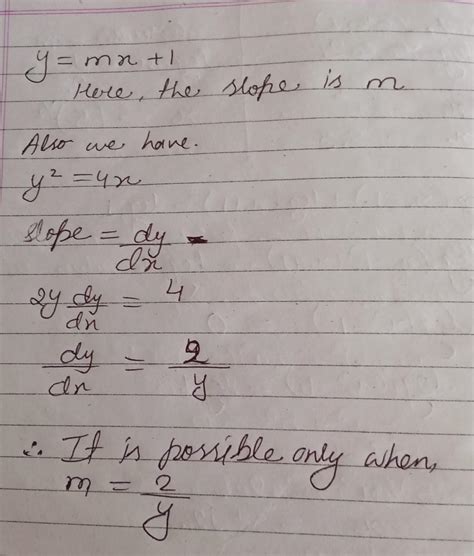 y = mx + 1
Here, the slope is m
Also we have.
y² = 4x
slope = dy/dx -
2y dy/dx = 4
dy/dx = 2/y
∴ It is possible only when,
m = 2/y